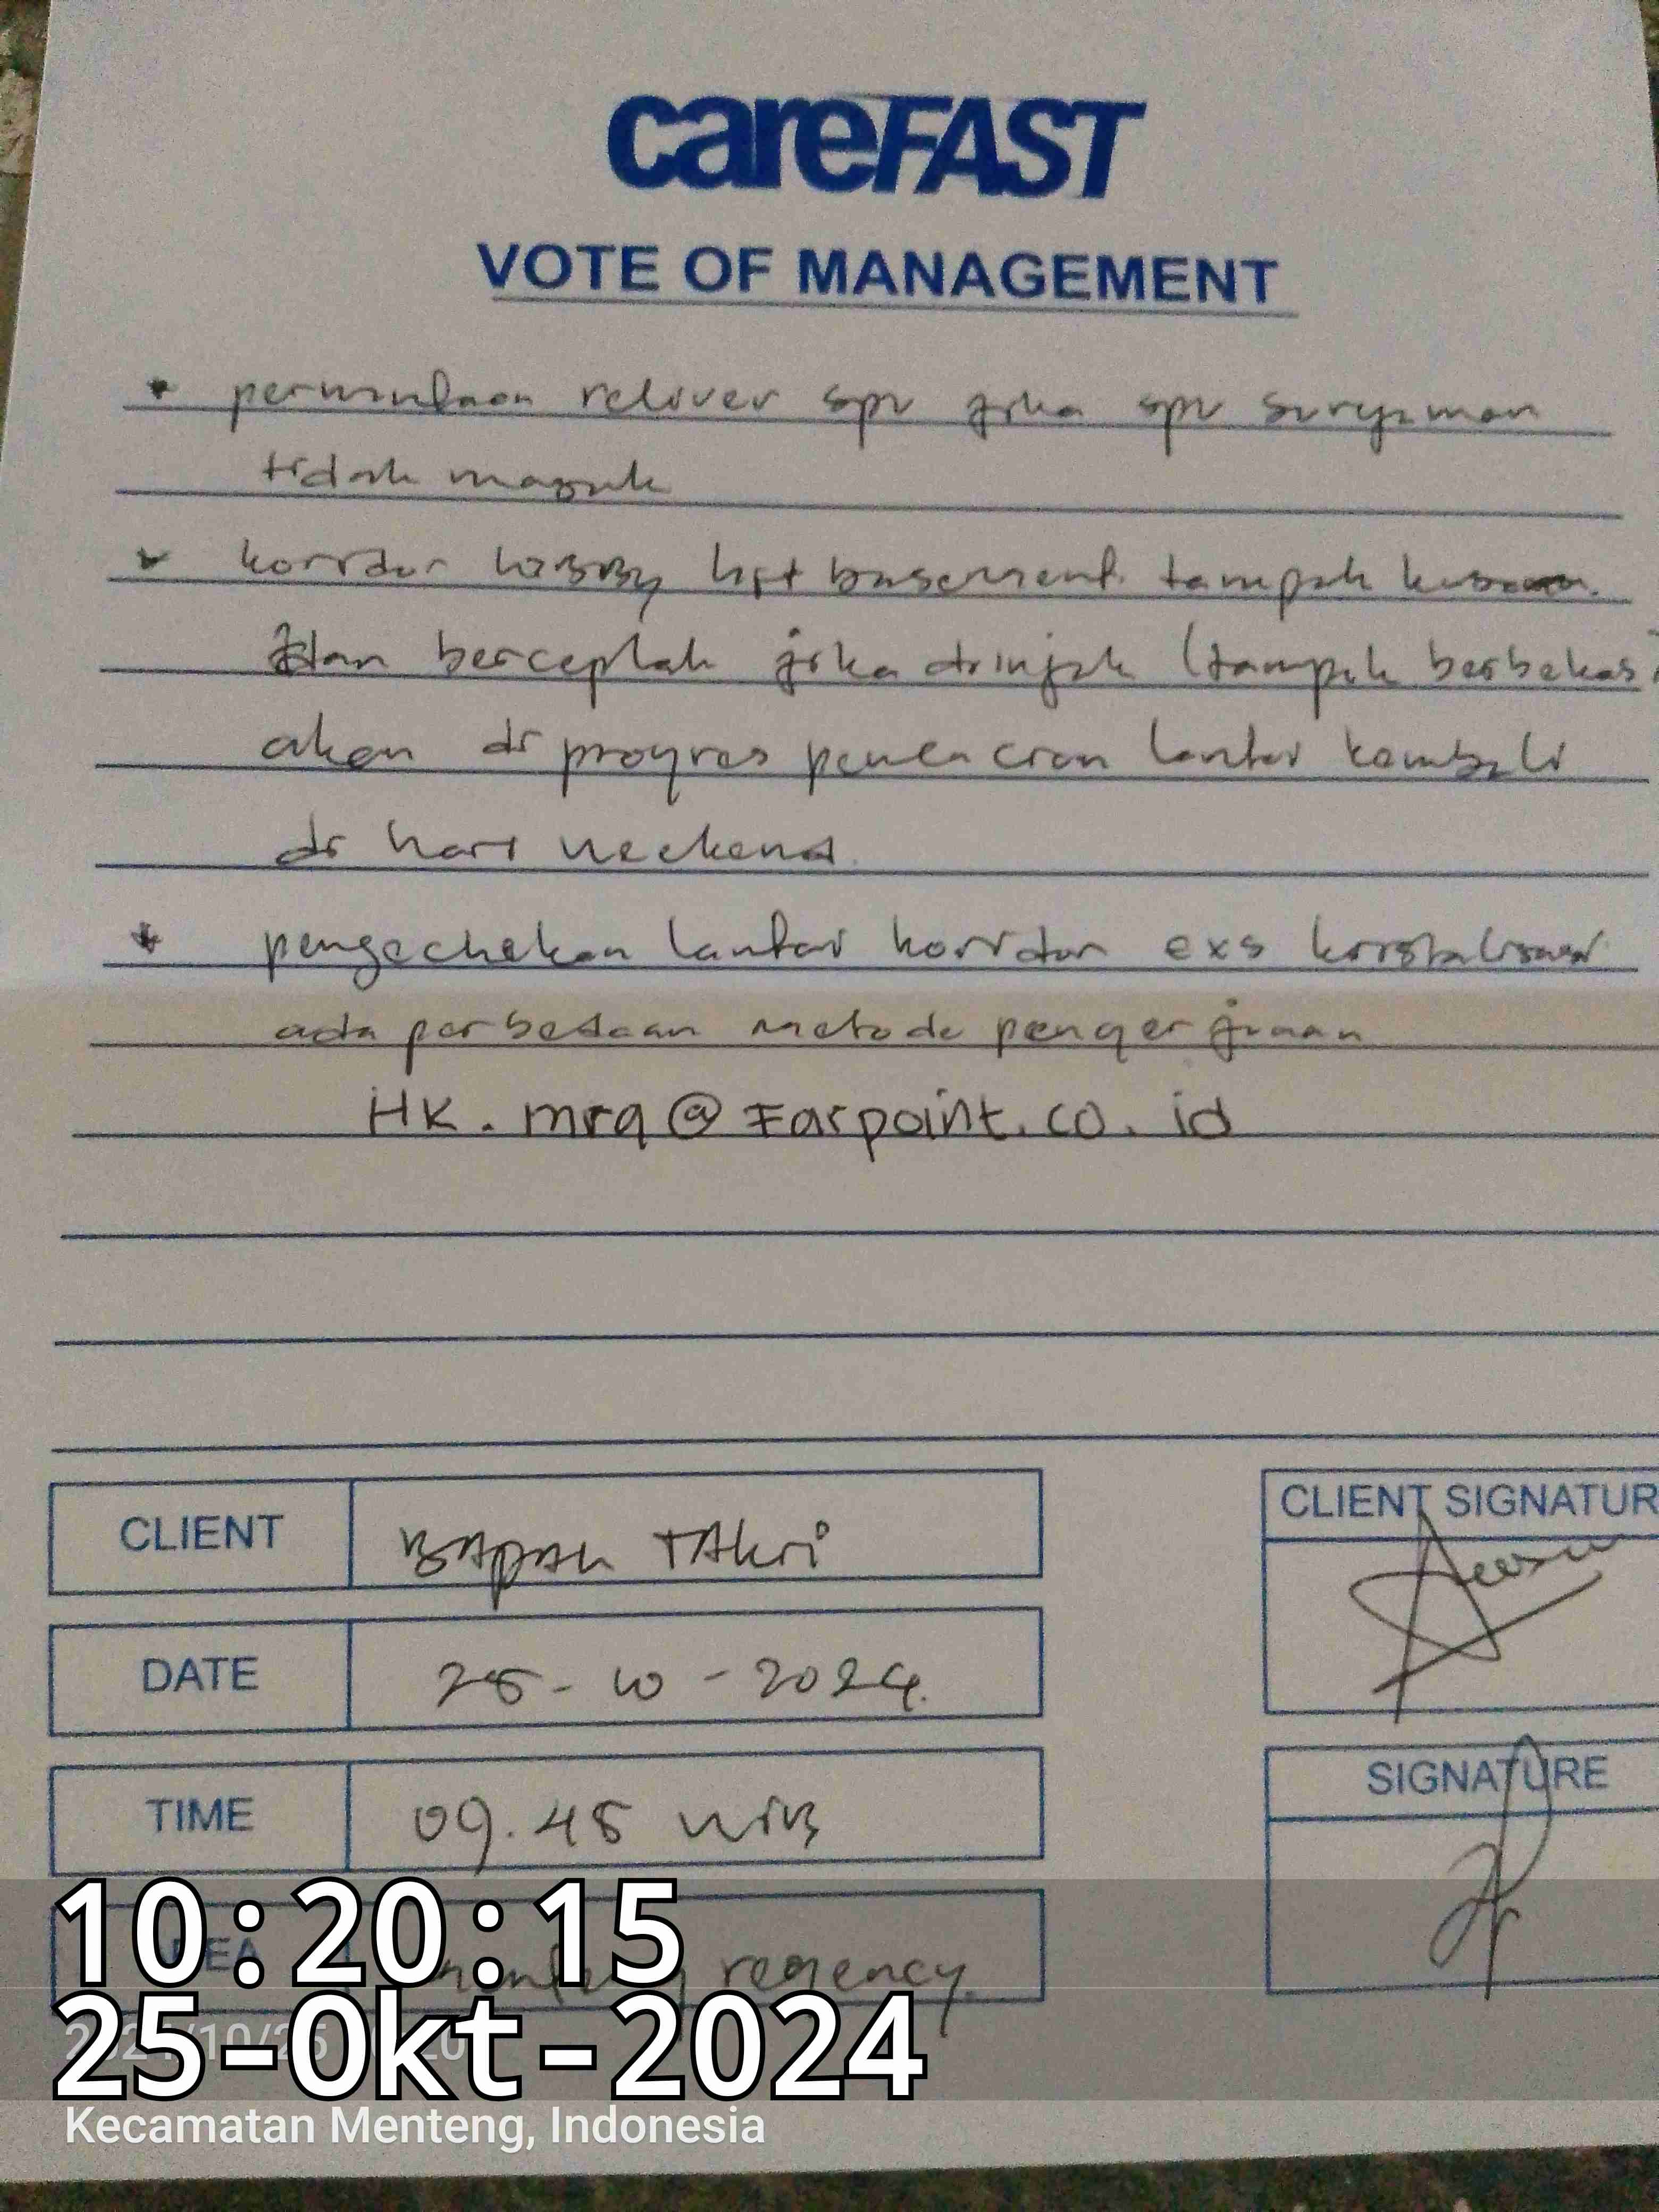 careFAST
VOTE OF MANAGEMENT
* permintaan reliver spv jika spv suryaman
tidak masuk
* korridor lobby lift basement tampak kusam.
dan berceplak jika diinjak (tampak berbekas)
akan di progres pengacian lantai kembali
di hari weekend.
* pengechekan lantai korridor exs kristalisasi
ada perbedaan metode pengerjaan
HK.mrq@Farpoint.co.id
CLIENT
BAPAK TAkri
CLIENT SIGNATUR
DATE
25-10-2024.
TIME
09.45 WIB
SIGNATURE
regency.
10:20:15
25-Okt-2024
Kecamatan Menteng, Indonesia